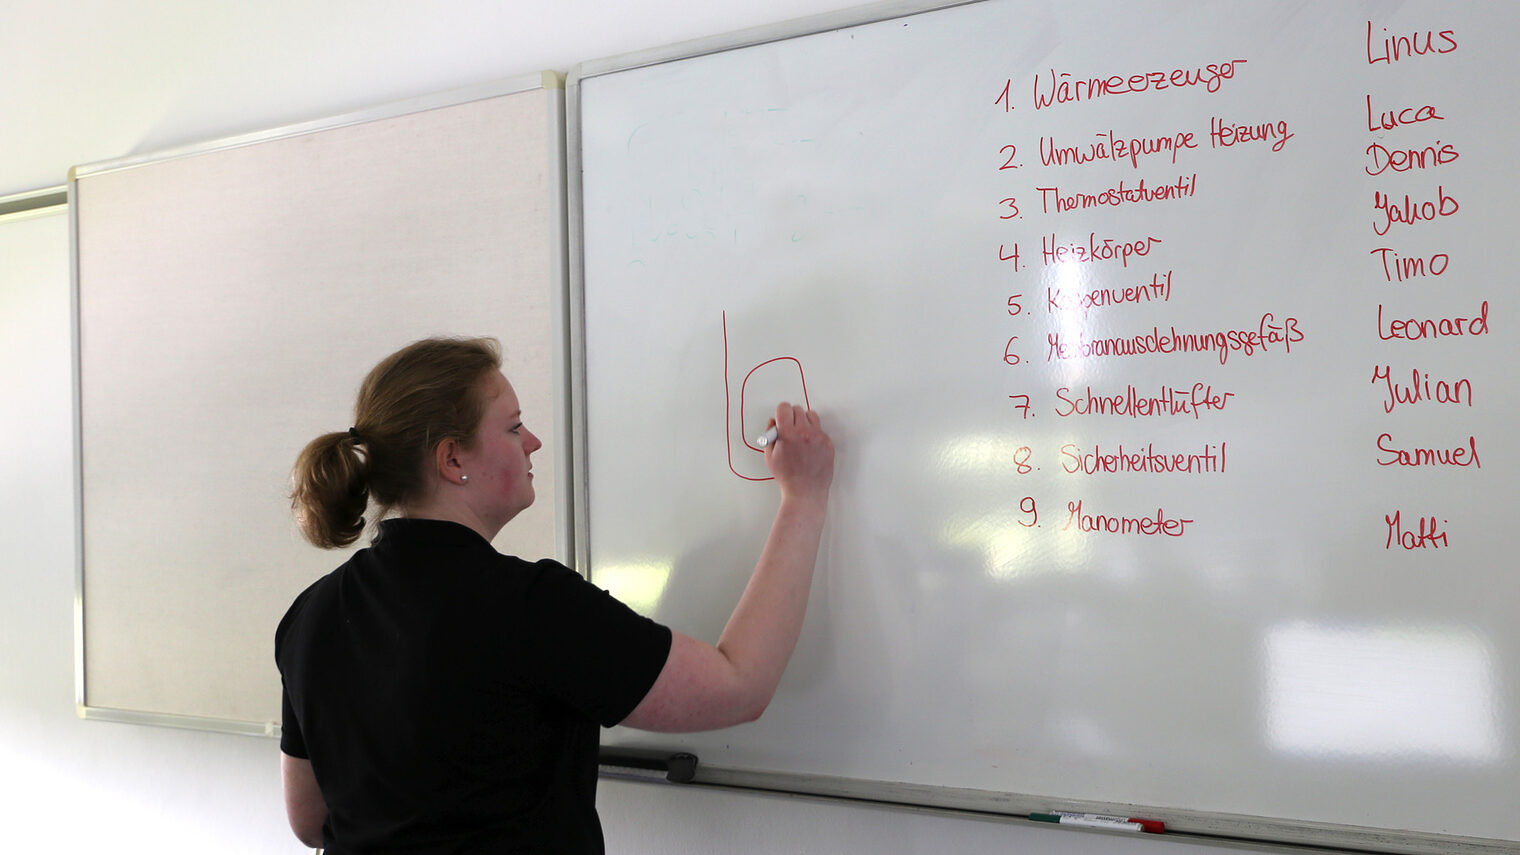 1. Wärmeerzeuger Linus
2. Umwälzpumpe Heizung Luca
3. Thermostatventil Dennis
4. Heizkörper Jakob
5. Kappenventil Timo
6. Membranausdehnungsgefäß Leonard
7. Schnellentlüfter Julian
8. Sicherheitsventil Samuel
9. Manometer Matti